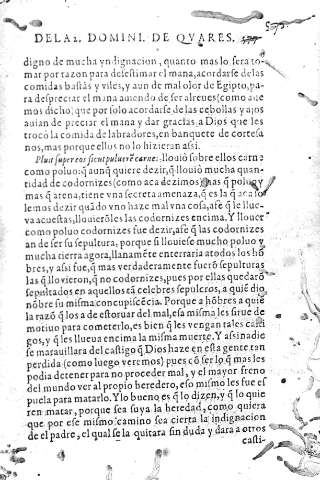 DELA 2. DOMINI. DE QVARES.
digno de mucha yndignacion, quanto mas lo sera to
mar por razon para desestimar el mana, acordarse delas
comidas bastas y viles, y aun de mal olor de Egipto, pa-
ra despreciar el mana auiendo de ser alreues (como aue
mos dicho) que por solo acordarse de las cebollas y ajos
auian de preciar el mana y dar gracias a Dios que les
trocó la comida de labradores, en banquete de cortesa
nos, mas porque ellos no lo hizieran assi.
Pluit super eos sicut puluerē carnes: llouió sobre ellos carne
como poluo: q̃ aunq̃ quiere dezir, q̃ llouió mucha quan-
tidad de codornizes (como aca dezimos) mas q̃ poluo y
mas q̃ arena, tiene vna secreta amenaza, q̃ es la q̃ aca so
lemos dezir quãdo vno haze mal vna cosa, asè q̃ le llue-
va acuestas, llouieróles las codornizes encima. Y llouer
como poluo codornizes fue dezir, asè q̃ las codornizes
an de ser su sepultura, porque si llouiese mucho poluo y
mucha tierra agora, llanamẽte enterraria atodos los hõ
bres, y assi fue, q̃ mas verdaderamente fuerō sepulturas
las q̃ llovieron, q̃ no codornizes, pues por ellas quedarō
sepultados en aquellos tã celebres sepulcros, a quiē dio
nõbre su misma concupiscēcia. Porque a hõbres a quiē
la razō q̃ los a de estoruar del mal, esa misma les sirue de
motiuo para cometerlo, es bien q̃ les vengan tales casti
gos, y q̃ les llueva encima la misma muerte. Y assi nadie
se marauillara del castigo q̃ Dios haze en esta gente tan
perdida (como luego veremos) pues cō ser lo q̃ mas les
podia detener para no proceder mal, y el mayor freno
del mundo ver al propio heredero, eso mismo les fue es
puela para matarlo. Y lo bueno es q̃ lo dizen, y q̃ lo quie
ren matar, porque sea suya la heredad, como quiera
que por ese mismo camino sea cierta la indignacion
de el padre, el qual se la quitara sin duda y dara a otros
casti-